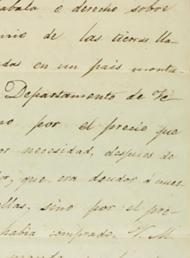 abalo o derecho sobre
ario de las tierras lla-
das en un país monta-
Departamento de Te
no por el precio que
or necesidad, despues de
o, que era deudor á aues
llas, sino por el pre
habia comprado. V. M